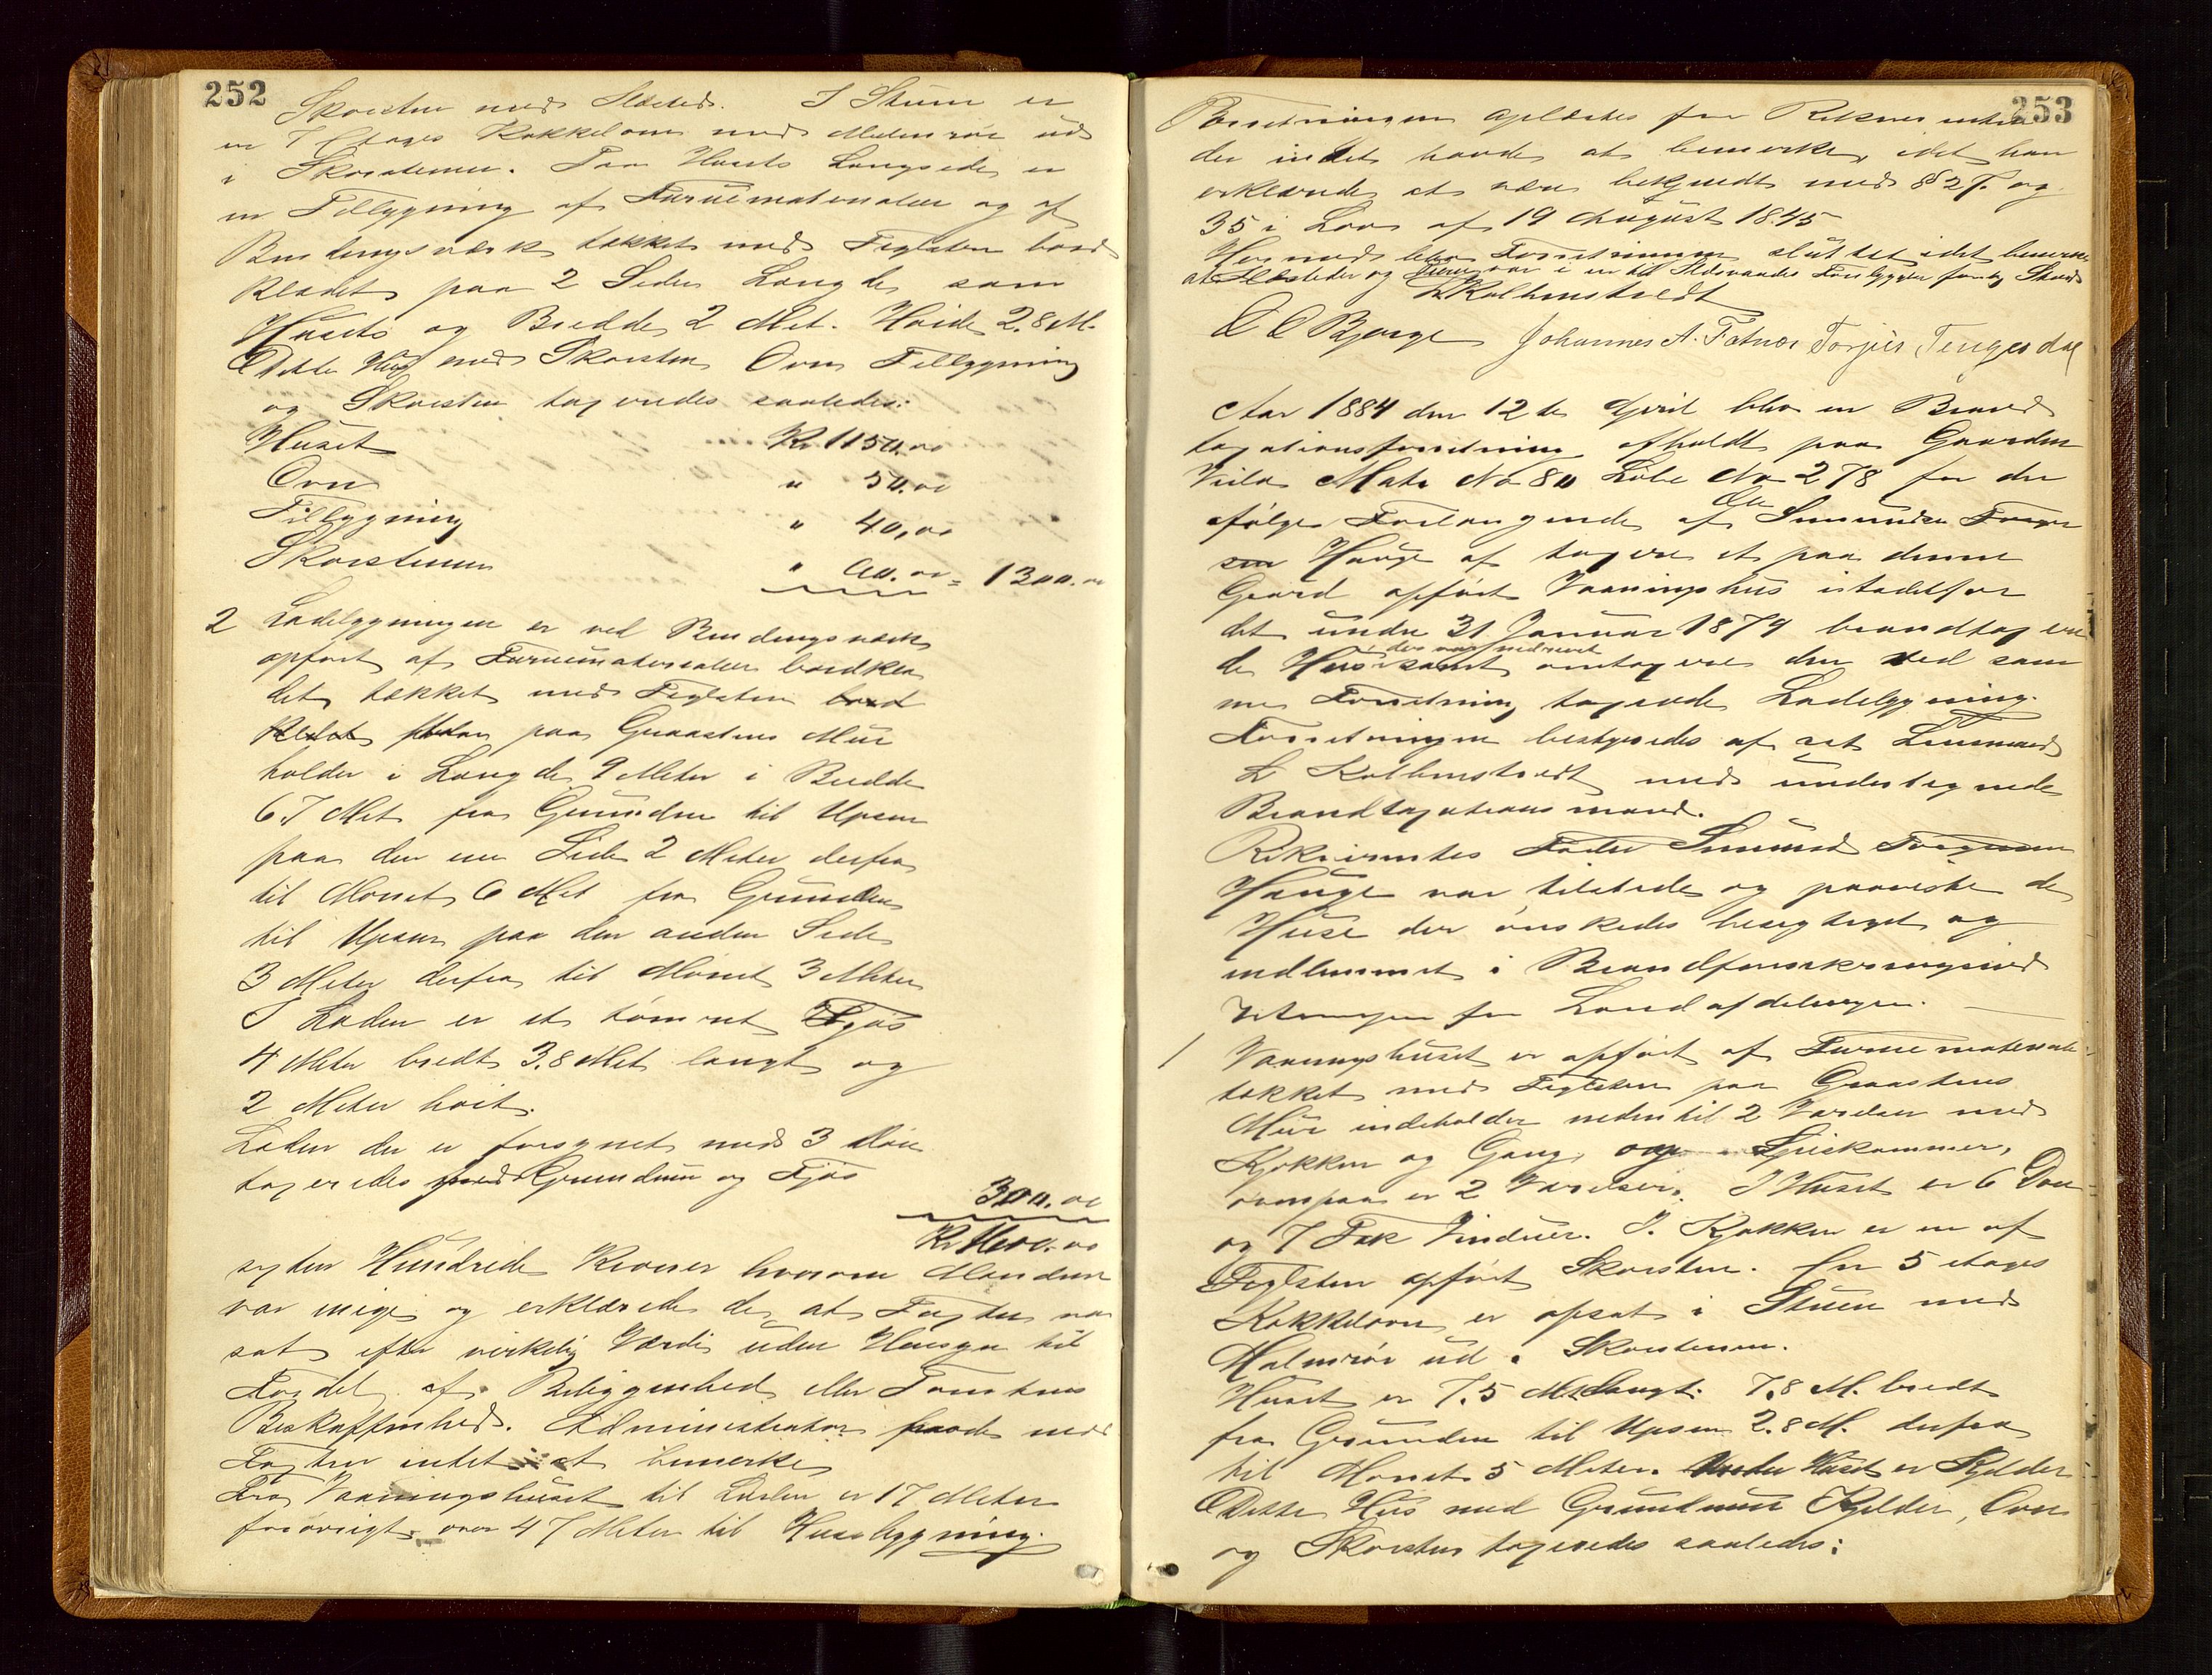 252
Skorsten med Ildsted. I Stuen er
en 7 Etages Kakkelovn med Malmrør ud
i Skorstenen. Paa Husets Langside er
en Tilbygning af Furuematerialier og af
Bindingsværk tækket med Teglsten bord
klædet paa 2 Sider Længde som
Husets og Bredde 2 Met. Høide 2.8 M.
Dette Hus med Skorsten Ovn Tilbygning
og Skorsten taxeredes saaledes:
Huset Kr. 1150.00
Ovn " 50.00
Tilbygning " 40,00
Skorstenen " 60.00 = 1300.00
2 Ladebygningen er ved Bindingsværk
opført af Furuematerialier bordklæ
det tækket med Teglsten bord
klædet staar paa Graastens Mur
holder i Længde 9 Meter i Bredde
6.7 Met fra Grunden til Upsen
paa den ene Side 2 Meter derfra
til Mønet 6 Met fra Grunden
til Upsen paa den anden Side
3 Meter derfra til Mønet 3 Meter
I Laden er et tømret Fjøs
4 Meter bredt 3.8 Met langt og
2 Meter høit.
Laden der er forsynet med 3 Døre
taxeredes med Grundmur og Fjøs
300.00
Kr. 1600.00
sexten Hundrede Kroner hvorom Mændene
var enige og erklærede de, at Taxten var
sat efter virkelig Værdi uden Hensyn til
Fordel af Beliggenhed eller Tomtens
Beskaffenhed. Administrator havde ved
Taxten intet at bemerke
Fra Vaaningshuset til Laden er 17 Meter
forøvrigt over 47 Meter til Husebygning.
253
Forretningen oplæstes for Rekvirenten
der intet havde at bemerke, idet han
erklærede at være bekjendt med § 27. og
35 i Lov af 19 August 1845
Hermed blev Forretningen sluttet idet bemerkes
at Ildsteder og Piber var i en til Ildsvaades Forebyggelse forsvarlig Stand
L Kolbenstvedt
O O Bjørge Johannes A. Fatnes Torjus Tengesdal
Aar 1884 den 12te April blev en Brand
taxationsforretning afholdt paa Gaarden
Veila Matr No 80 Løbe No 278 for der
efølge Forlangende af Ole Simonsen Torger
sen Hauge af taxere et paa denne
Gaard opført Vaaningshus istedetfor
det under 31 Januar 1879 brandtaxere
de Hus der var nedrevet samt omtaxere den ved sam
me Forretning taxerede Ladebygning.
Forretningen bestyredes af cst Lensmand
L Kolbenstvedt med undertegnede
Brandtaxationsmænd.
Rekvirentes Fader Simund Torgersen
Hauge var tilstede og paaviste de
Huse der ønskedes besigtiget og
indlemmet i Brandforsikringsind
retningen for Landafdelingen.
1 Vaaningshuset er opført af Furuematerial
tækket med Teglsten paa Graastens
Mur indeholder nedentil 2 Værelser med
Kjøkken og Gang, og Spiskammer,
ovenpaa er 2 Værelser. I Huset er 6 Døre
og 7 Fak Vinduer. I Kjøkken er en af
Teglsten opført Skorsten. En 5 etages
Kakkelovn er opsat i Stuen med
Malmrør ud i Skorstenen.
Huset er 7.5 Met langt. 7.8 M. bredt
fra Grunden til Upsen 2.8 M. derfra
til Mønet 5 Meter. Under Huset er Kjelder
Dette Hus med Grundmur Kjelder, Ovn
og Skorsten taxeredes saaledes: